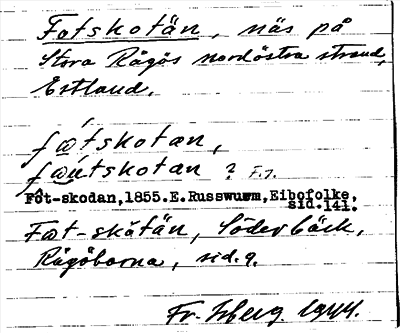 Fotskotän, näs på
Stora Rågös nordöstra strand,
Estland.
fωtskotan,
fωutskotan ? F.I.
Fôt-skodan,1855.E.Russwurm,Eibofolke,
sid.141.
Fωt-skåtän, Söderbäck,
Rågöborna, sid. 9.
Fr. Isberg 1944.